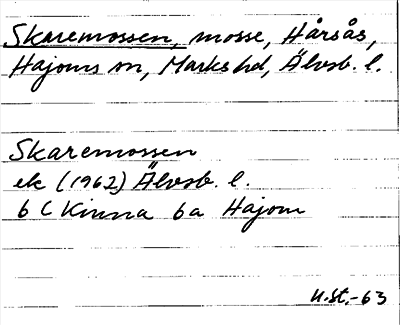 Skaremossen, mosse, Hårsås,
Hajoms sn, Marks hd, Älvsb. l.
Skaremossen
ek (1962) Älvsb. l.
6 C Kinna 6a Hajom
U.St.-63